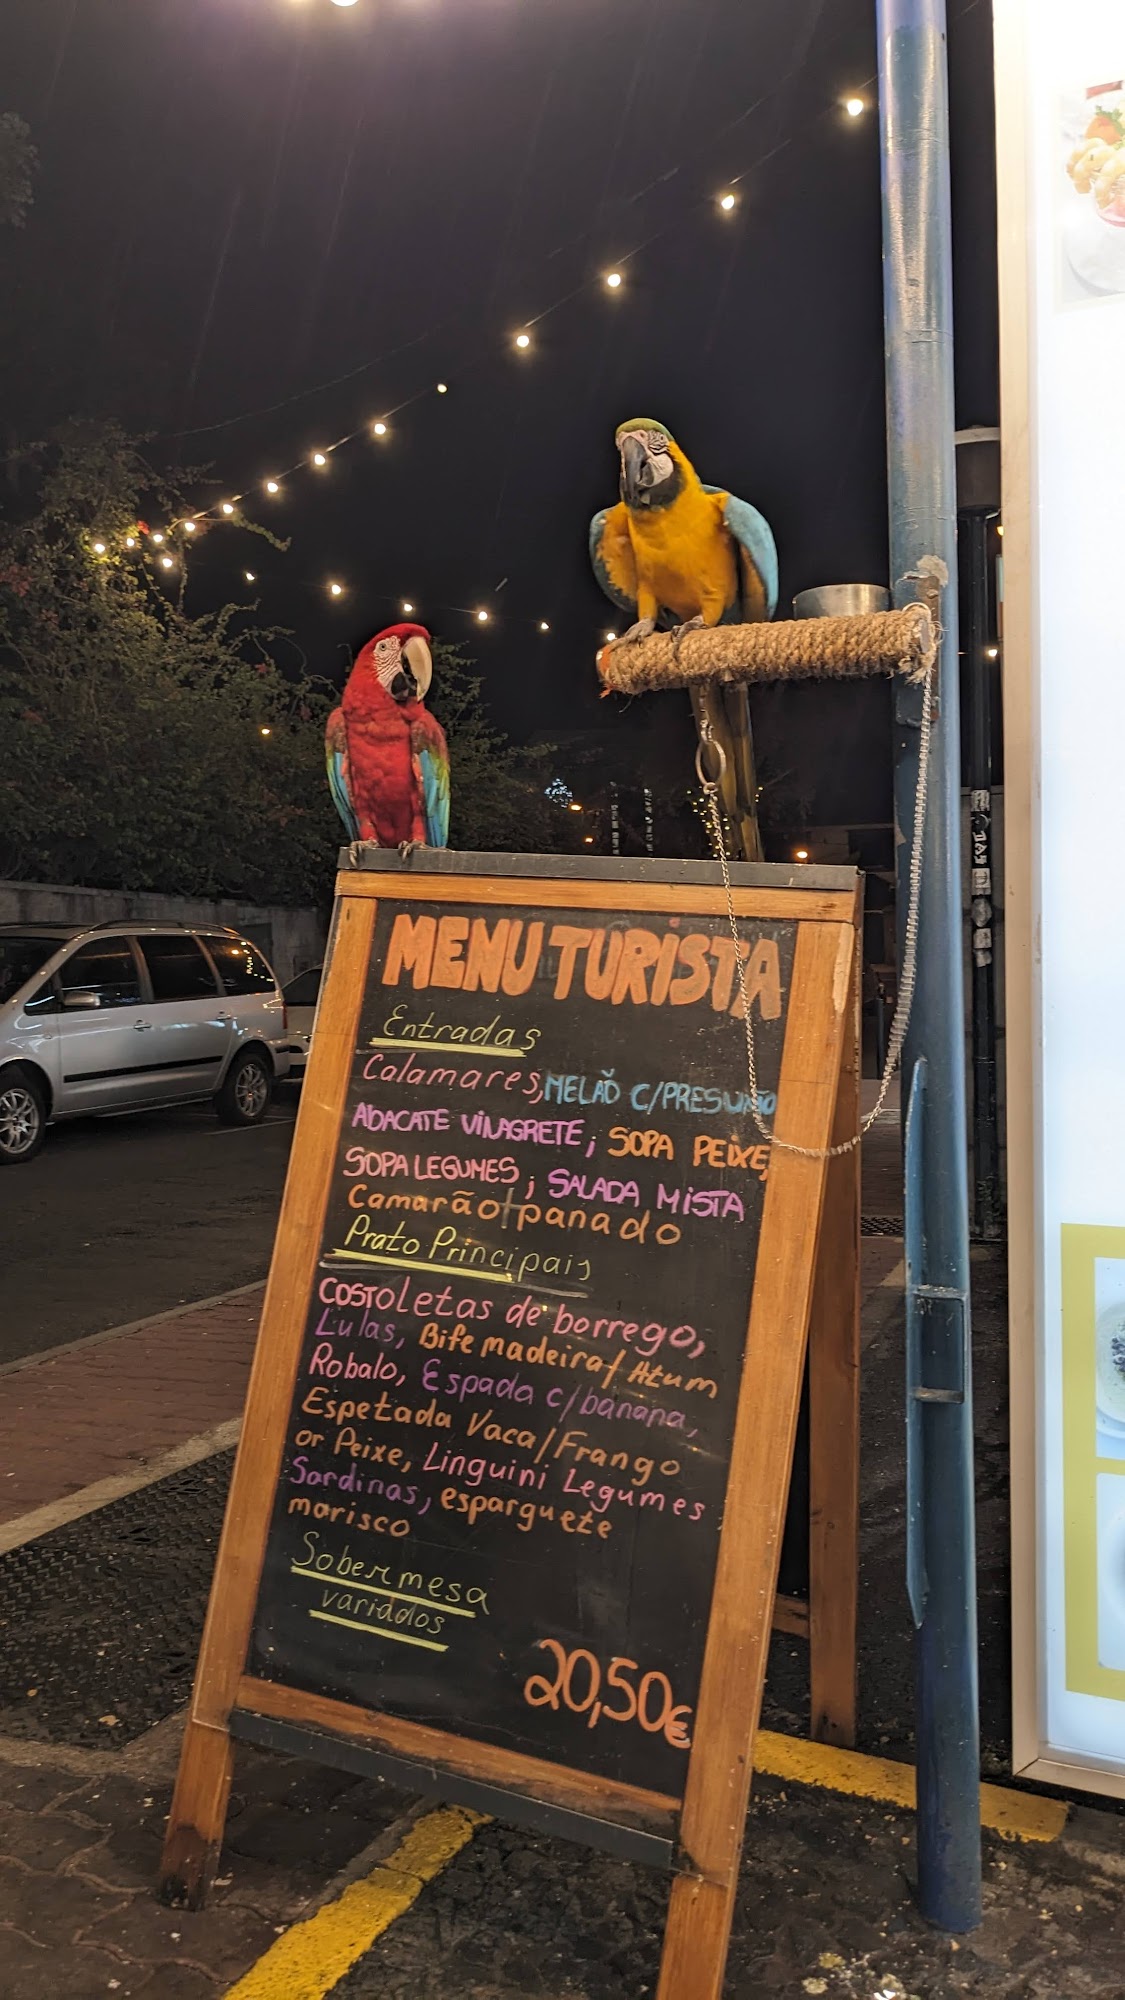 MENU TURISTA
Entradas
Calamares, MELÃO C/PRESUNTO
ABACATE VINAGRETE; SOPA PEIXE,
SOPA LEGUMES; SALADA MISTA
Camarão panado
Prato Principais
COSTOLETAS de borrego,
Lulas, Bife madeira/Atum
Robalo, Espada c/banana,
Espetada Vaca/Frango
or Peixe, Linguini Legumes
Sardinas, esparguete
marisco
Sobermesa
variados
20,50€